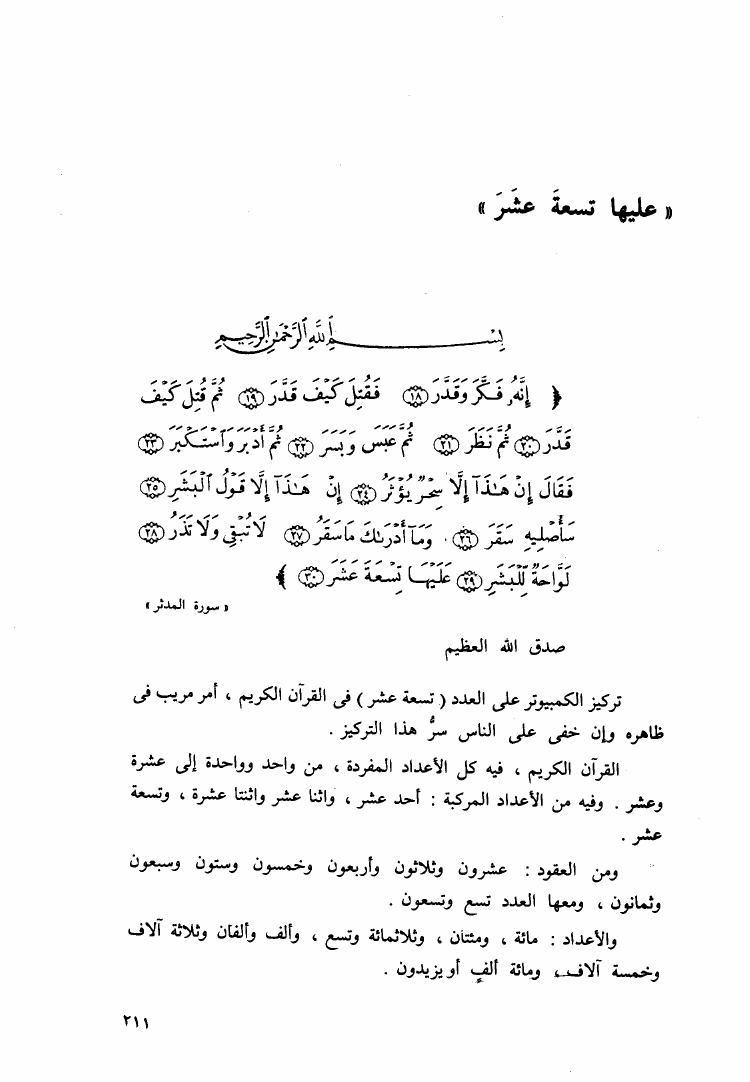 « عليها تسعةَ عشَرَ »
بِسْمِ اللَّهِ الرَّحْمَٰنِ الرَّحِيمِ
﴿ إِنَّهُۥ فَكَّرَ وَقَدَّرَ ﴿١٨﴾ فَقُتِلَ كَيْفَ قَدَّرَ ﴿١٩﴾ ثُمَّ قُتِلَ كَيْفَ
قَدَّرَ ﴿٢٠﴾ ثُمَّ نَظَرَ ﴿٢١﴾ ثُمَّ عَبَسَ وَبَسَرَ ﴿٢٢﴾ ثُمَّ أَدْبَرَ وَٱسْتَكْبَرَ ﴿٢٣﴾
فَقَالَ إِنْ هَٰذَآ إِلَّا سِحْرٌ يُؤْثَرُ ﴿٢٤﴾ إِنْ هَٰذَآ إِلَّا قَوْلُ ٱلْبَشَرِ ﴿٢٥﴾
سَأُصْلِيهِ سَقَرَ ﴿٢٦﴾ وَمَآ أَدْرَىٰكَ مَا سَقَرُ ﴿٢٧﴾ لَا تُبْقِى وَلَا تَذَرُ ﴿٢٨﴾
لَوَّاحَةٌ لِّلْبَشَرِ ﴿٢٩﴾ عَلَيْهَا تِسْعَةَ عَشَرَ ﴿٣٠﴾ ﴾
« سورة المدثر »
صدق الله العظيم
تركيز الكمبيوتر على العدد ( تسعة عشر ) فى القرآن الكريم ، أمر مريب فى
ظاهره وإن خفى على الناس سرُّ هذا التركيز .
القرآن الكريم ، فيه كل الأعداد المفردة ، من واحد وواحدة إلى عشرة
وعشر . وفيه من الأعداد المركبة : أحد عشر ، واثنا عشر واثنتا عشرة ، وتسعة
عشر .
ومن العقود : عشرون وثلاثون وأربعون وخمسون وستون وسبعون
وثمانون ، ومعها العدد تسع وتسعون .
والأعداد : مائة ، ومئتان ، وثلاثمائة وتسع ، وألف وألفان وثلاثة آلاف
وخمسة آلاف ، ومائة ألفٍ أو يزيدون .
٢١١